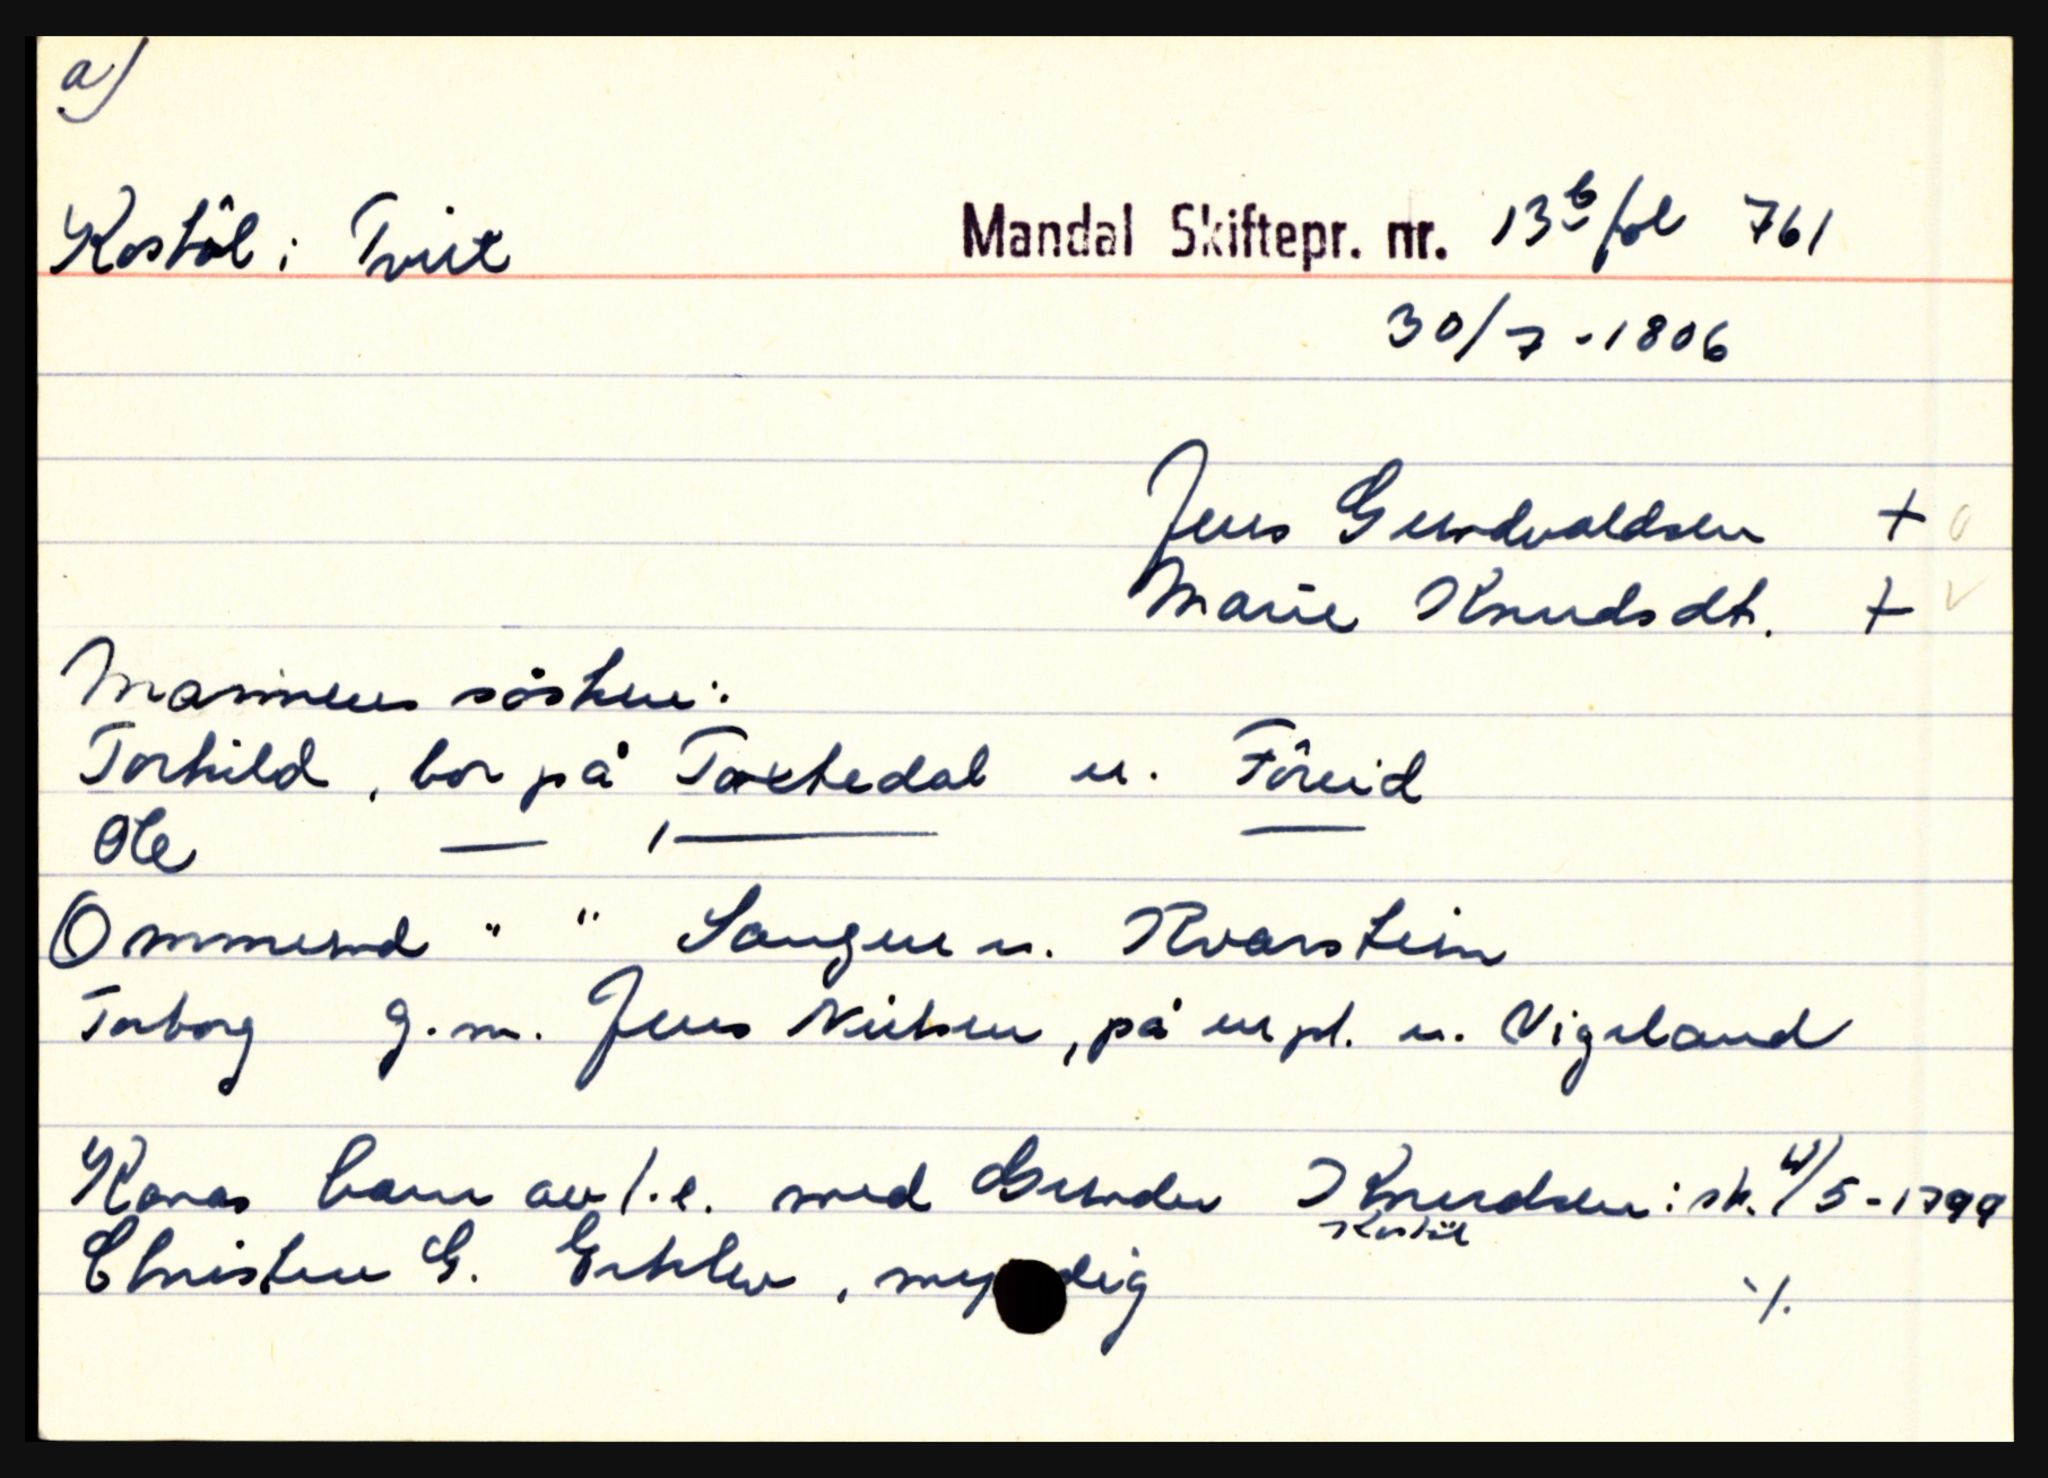 a)
Kostöl i Tveit Mandal Skiftepr. nr. 13b fol 761
30/7 - 1806
Jens Gundvaldsen +
Marie Knudsdt. +
Mannens sösken:
Torkild, bor på Toxtedal u. Föreid
Ole — , — —
Ommund " " Saugen u. Kvarstein
Torborg g.m. Jens Nielsen, på en pl. u. Vigeland
Konas barn av 1.e. med Gunder Knudsen: sk. /5-1799
Kostöl
Christen G. , myndig ·/.